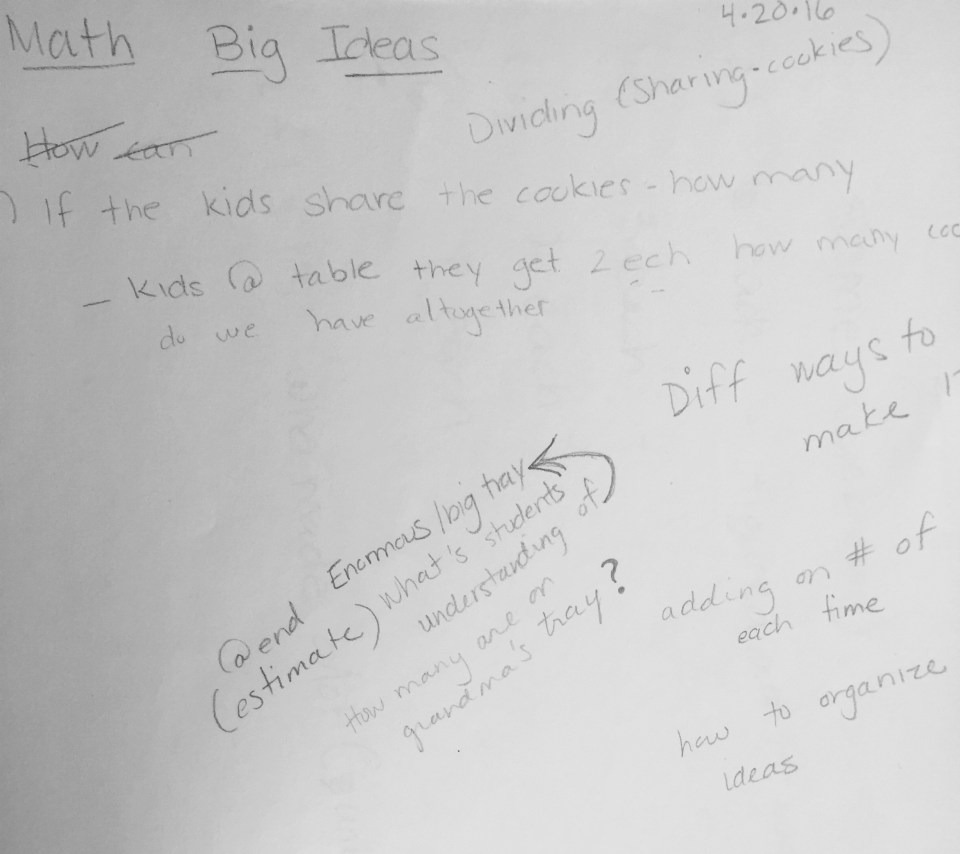 4.20.16
Math Big Ideas
Dividing (Sharing-cookies)
How can
) If the kids share the cookies - how many
- kids @ table they get 2 ech how many
do we have altogether
Diff ways to
make
@end Enormous/big tray
(estimate) what's students
understanding of
How many are on
grandma's tray?
adding on # of
each time
how to organize
ideas